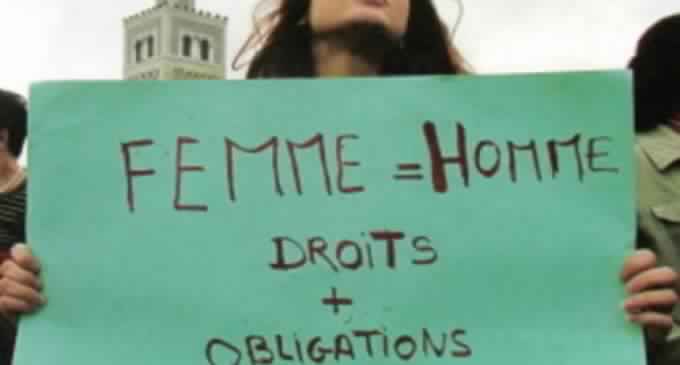 FEMME = HOMME
DROiTS
+
OBLiGATiONS